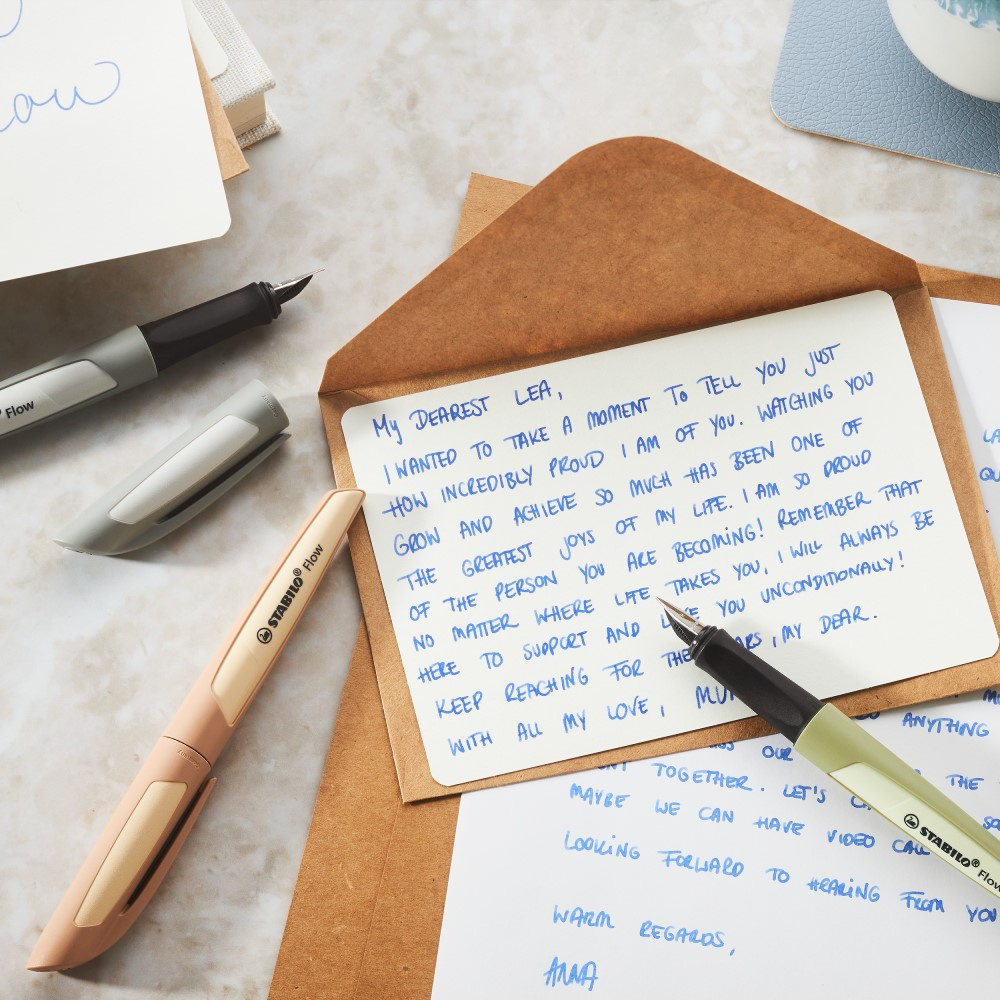 ow
Flow
STABILO® Flow
My DEAREST LEA,
I WANTED TO TAKE A MOMENT TO TELL YOU JUST
HOW INCREDIBLY PROUD I AM OF YOU. WATCHING YOU
GROW AND ACHIEVE SO MUCH HAS BEEN ONE OF
THE GREATEST JOYS OF MY LIFE. I AM SO PROUD
OF THE PERSON YOU ARE BECOMING! REMEMBER THAT
NO MATTER WHERE LIFE TAKES YOU, I WILL ALWAYS BE
HERE TO SUPPORT AND YOU UNCONDITIONALLY!
KEEP REACHING FOR THE ARS, MY DEAR.
WITH ALL MY LOVE, MU
ANYTHING
OUR THE
TOGETHER. LET'S
MAYBE WE CAN HAVE VIDEO CALL
LOOKING FORWARD TO HEARING FROM YOU
WARM REGARDS,
ANNA
STABILO® Flow